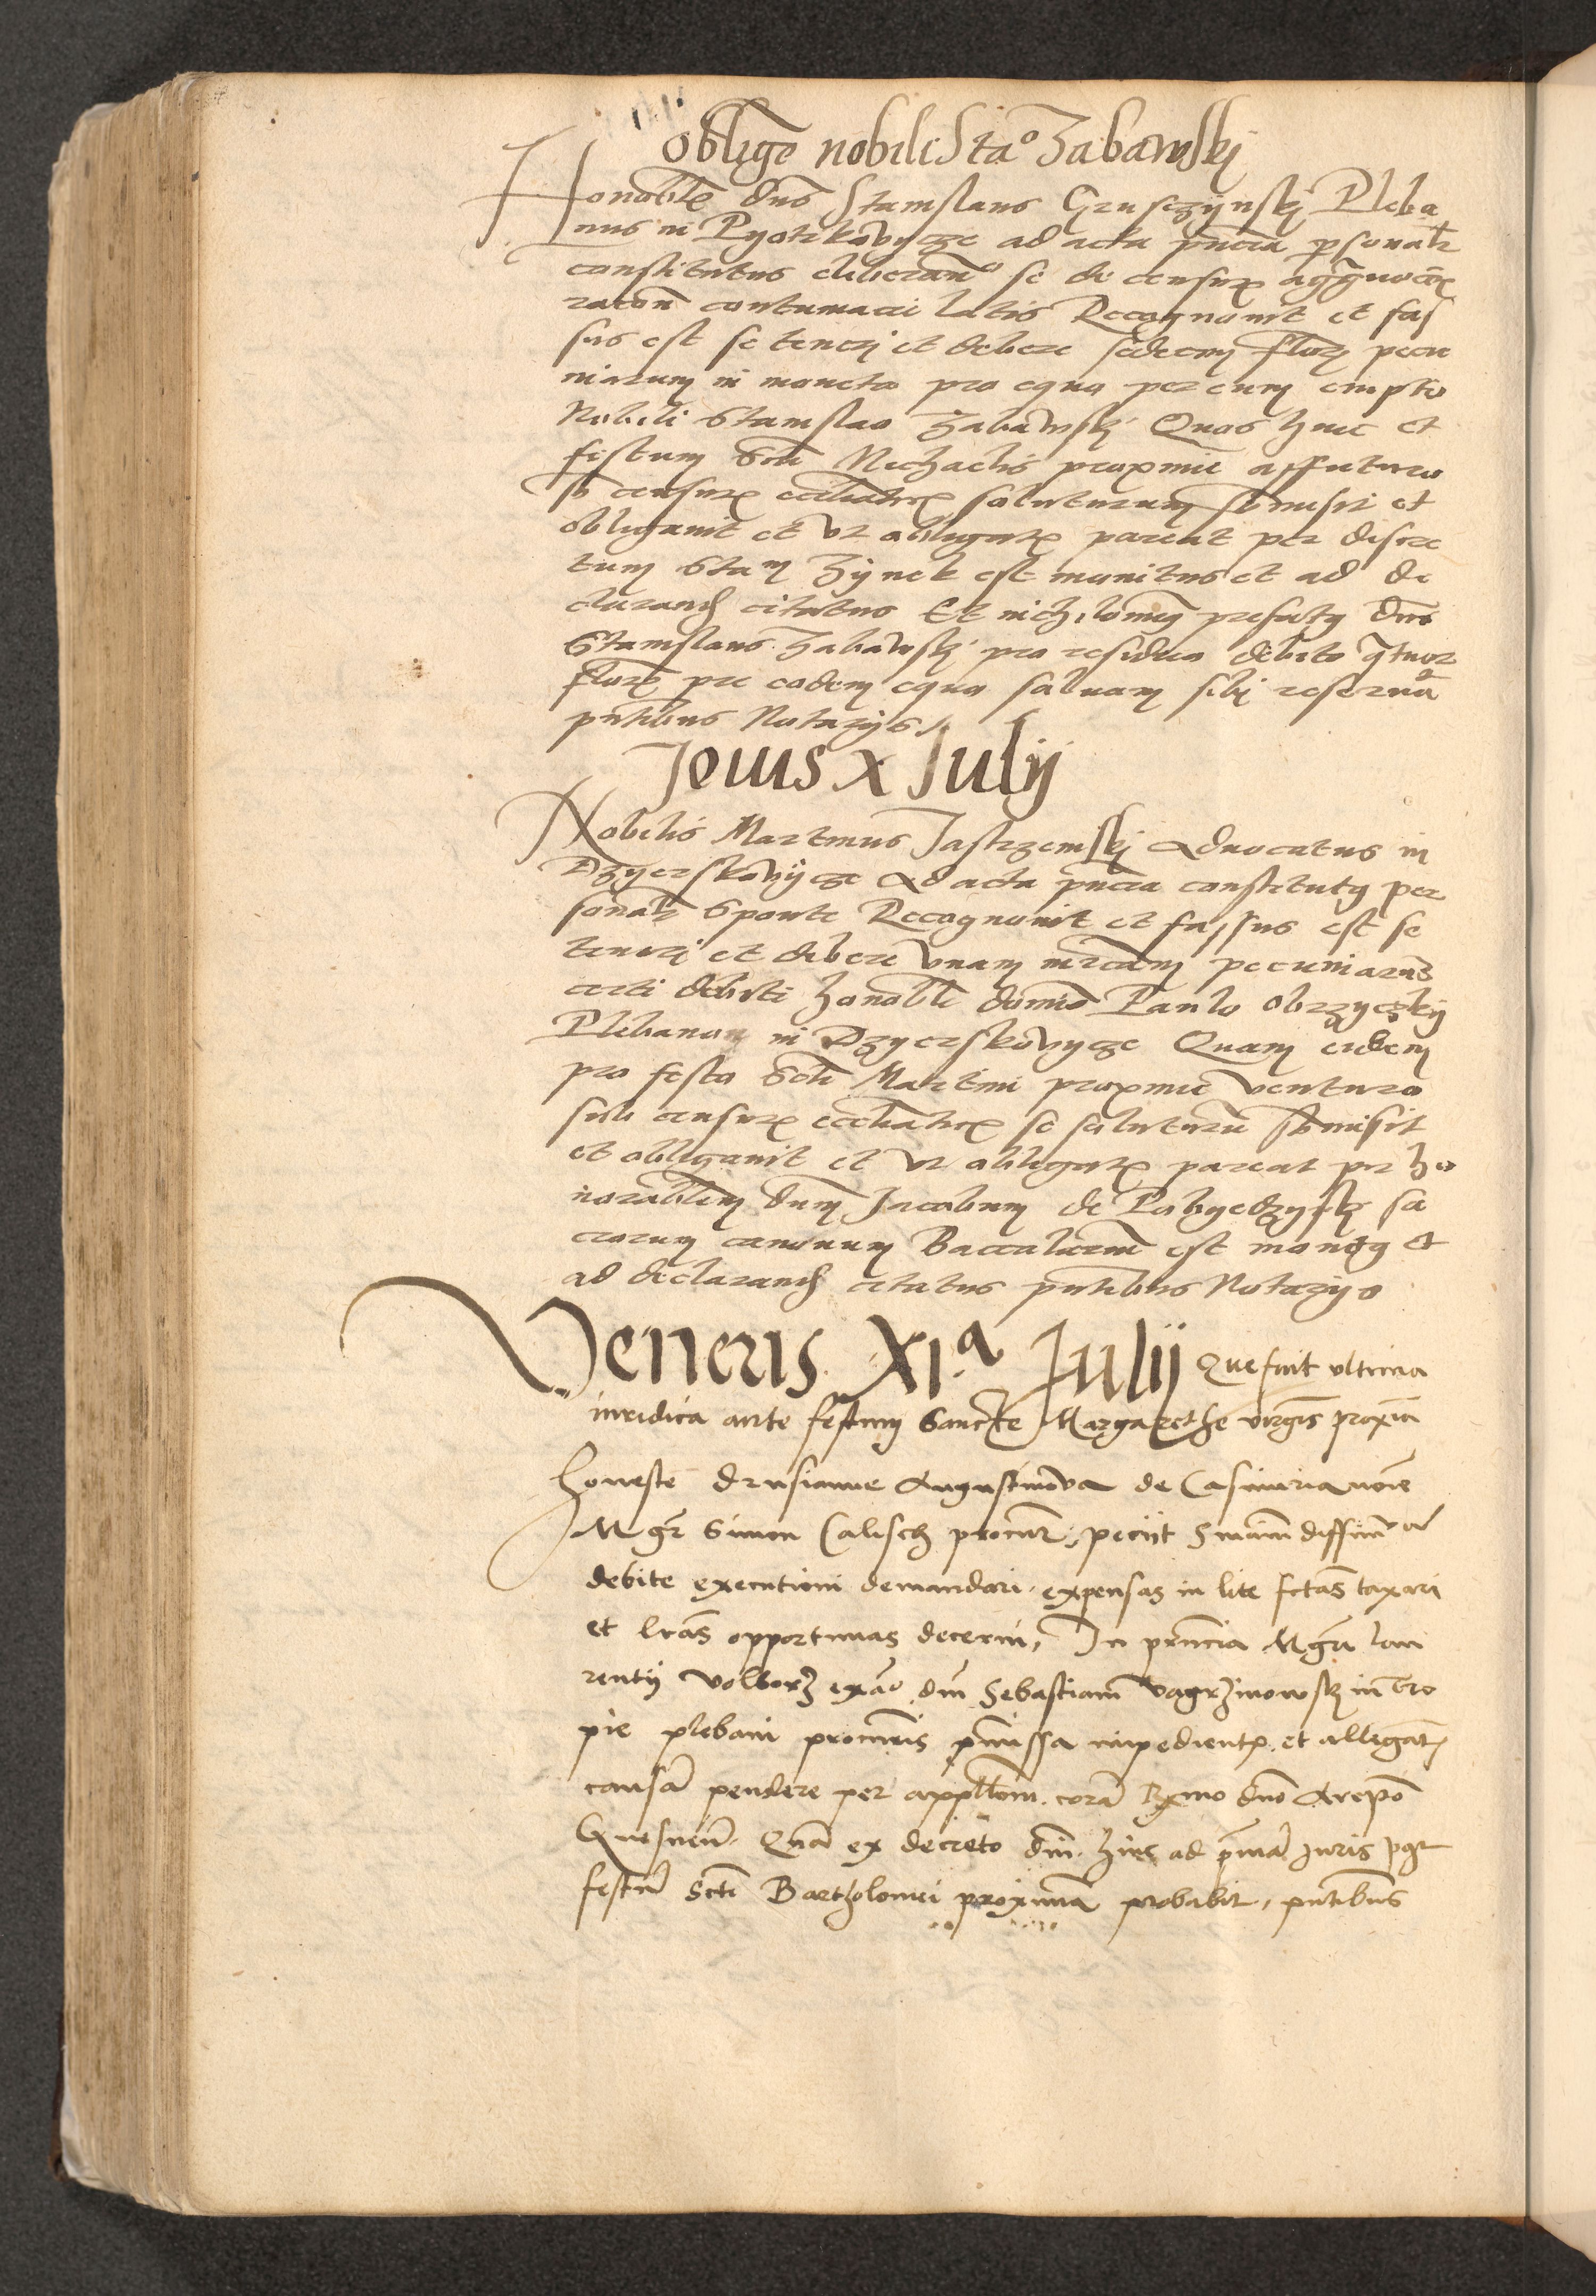 Oblig͞e nobili Sta° Zabawskj
Honobl͞e dn͞s Stanislaus Grusczÿnskj Pleba
nus in Pyotrkovycze ad acta pn͞cia p͞sonalr͞
constitutus eliberan͞° se de censur͞ aggravator͞
racon͞ contumacie latis Recognouit et fas
sus est se tenerj et debere sedecim flor͞ pecu
niarum in moneta pro equo per eum empto
Nobili Stanislao Zabawskj Quos hinc et
festum Sct͞i Michaelis proxime affuturo
sb censur͞ ecclia͞tr͞ soluturum sbmisit et
obligauit et vt obligatr͞ pareat per discre
tum Stan͞ Zÿnek est monitus et ad de
clarand͞ citatus Et nichilomin9 prefat9 dn͞s
Stanislaus Zabawskj pro residuo debito q͞tuor
flor͞ pre eodem equo saluam sibj reserua͞
pn͞tibus Notarijs
Jouis X Julij
Nobilis Martinus Jastrzemskj Aduocatus in
Dzyerskovÿcze Ad acta pn͞cia constitut9 per
sonalr͞ Sponte Recognouit et fassus est se
tenerj et debere vnam mr͞cam pecuniarum
certi debiti honobli͞ domi͞o Paulo Obrzyczkij
Plebanon in Dzyerskovycze Quam eidem
pro festo Sct͞i Martini proxime venturo
sub censur͞ ecclia͞tr͞ se soluturu͞ sbmisit
et obligauit et vt obligatr͞ pareat per ho
norabilem dnm͞ Jacobum de Pobyedzyskj sa
crorum canonum Baccalarium͞ est monit9 et
ad declarand͞ citatus pn͞tibus Notarijs
Veneris XIa Julij Que fuit vltima
iuridica ante festum Sancte Margarethe virgis͞ proxi͞a
Honeste Drusianne Augustinova de Casimiria noi͞e
Mgr͞ Simon Calisch procur͞ peciit Snia͞m diffini͞va͞
debite executioni demandari expensas in lite fctas͞ taxari
et lr͞as opportunas decerni, In pr͞ncia Mgr͞i lau
rentij Volborz ex ad° dni͞ Sebastiani Vagrzinowskj in Cro
pie plebani procur͞is pr͞missa impedientr͞ et allegan͞t
causa͞ pendere per appll͞om cora͞ Rx͞mo dno͞ Arepo͞
Gnesnen͞. Qua͞ ex decreto dni͞ hinc ad p͞ma͞ Juris post
festu͞ Scti͞ Bartholomei proxima͞ probabit, pn͞tibus